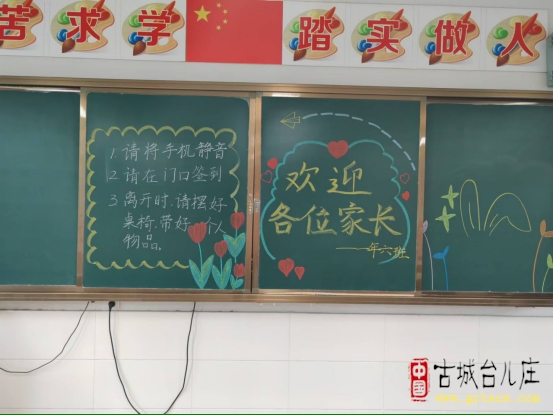 苦求学 踏实做人
1.请将手机静音
2.请在门口签到
3 离开时.请摆好
桌椅.带好个人
物品.
欢迎
各位家长
——年六班
中国
古城台儿庄